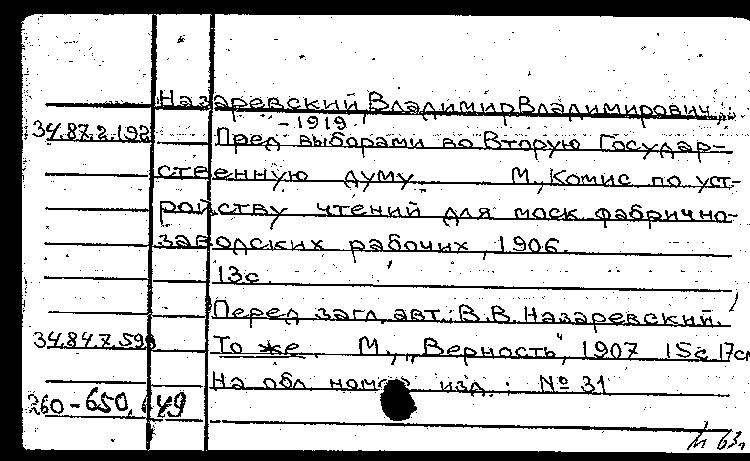 Назаревский, Владимир Владимирович,
-1919
34.87.2.192 Пред выборами во Вторую Государ-
ственную думу. М., Комис по уст-
ройству чтений для моск фабрично-
заводских рабочих, 1906.
13с.
Перед загл. авт.: В.В. Назаревский.
То же. М., "Верность", 1907 15с 17см
На обл. номер изд.: № 31
260-650,649